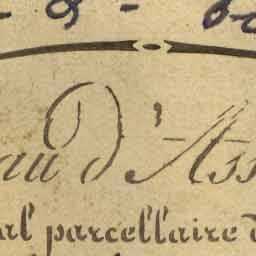 au d'Ass
al parcellaire d